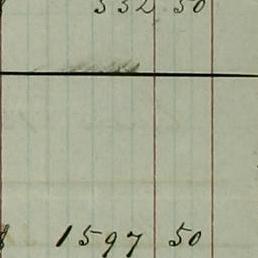 332 50
$ 1597 50